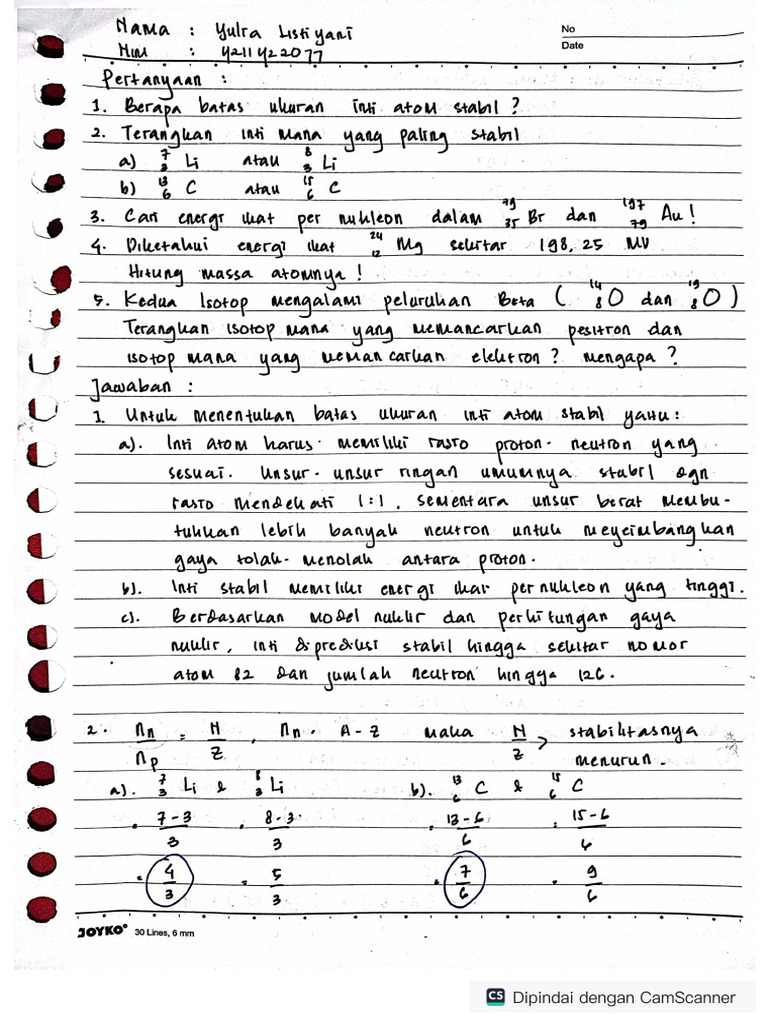 Nama : Yulra Listiyani
No
Nim : 4211422077
Date
Pertanyaan :
1. Berapa batas ukuran inti atom stabil ?
2. Terangkan inti mana yang paling stabil
a) ⁷₃ Li atau ⁸₃ Li
b) ¹³₆ C atau ¹⁵₆ C
3. Cari energi ikat per nukleon dalam ⁷⁹₃₅ Br dan ¹⁹⁷₇₉ Au !
4. Diketahui energi ikat ²⁴₁₂ Mg sekitar 198,25 MV
Hitung massa atomnya !
5. Kedua Isotop mengalami peluruhan Beta ( ¹⁴₈O dan ¹⁹₈O )
Terangkan isotop mana yang memancarkan positron dan
isotop mana yang memancarkan elektron ? mengapa ?
Jawaban :
1. Untuk menentukan batas ukuran inti atom stabil yaitu :
a). Inti atom harus memiliki rasio proton - neutron yang
sesuai. Unsur - unsur ringan umumnya stabil dgn
rasio mendekati 1:1, sementara unsur berat membu-
tuhkan lebih banyak neutron untuk meyeimbangkan
gaya tolak- menolak antara proton.
b). Inti stabil memiliki energi ikat per nukleon yang tinggi.
c). Berdasarkan model nuklir dan perhitungan gaya
nuklir, inti diprediksi stabil hingga sekitar nomor
atom 82 dan jumlah neutron hingga 126.
2. nn/np = N/Z , nn = A - Z maka N/Z > stabilitasnya
menurun.
a). ⁷₃ Li & ⁸₃ Li b). ¹³₆ C & ¹⁵₆ C
= 7-3/3 = 8-3/3 = 13-6/6 = 15-6/6
= 4/3 = 5/3 = 7/6 = 9/6
JOYKO® 30 Lines, 6 mm
CS Dipindai dengan CamScanner